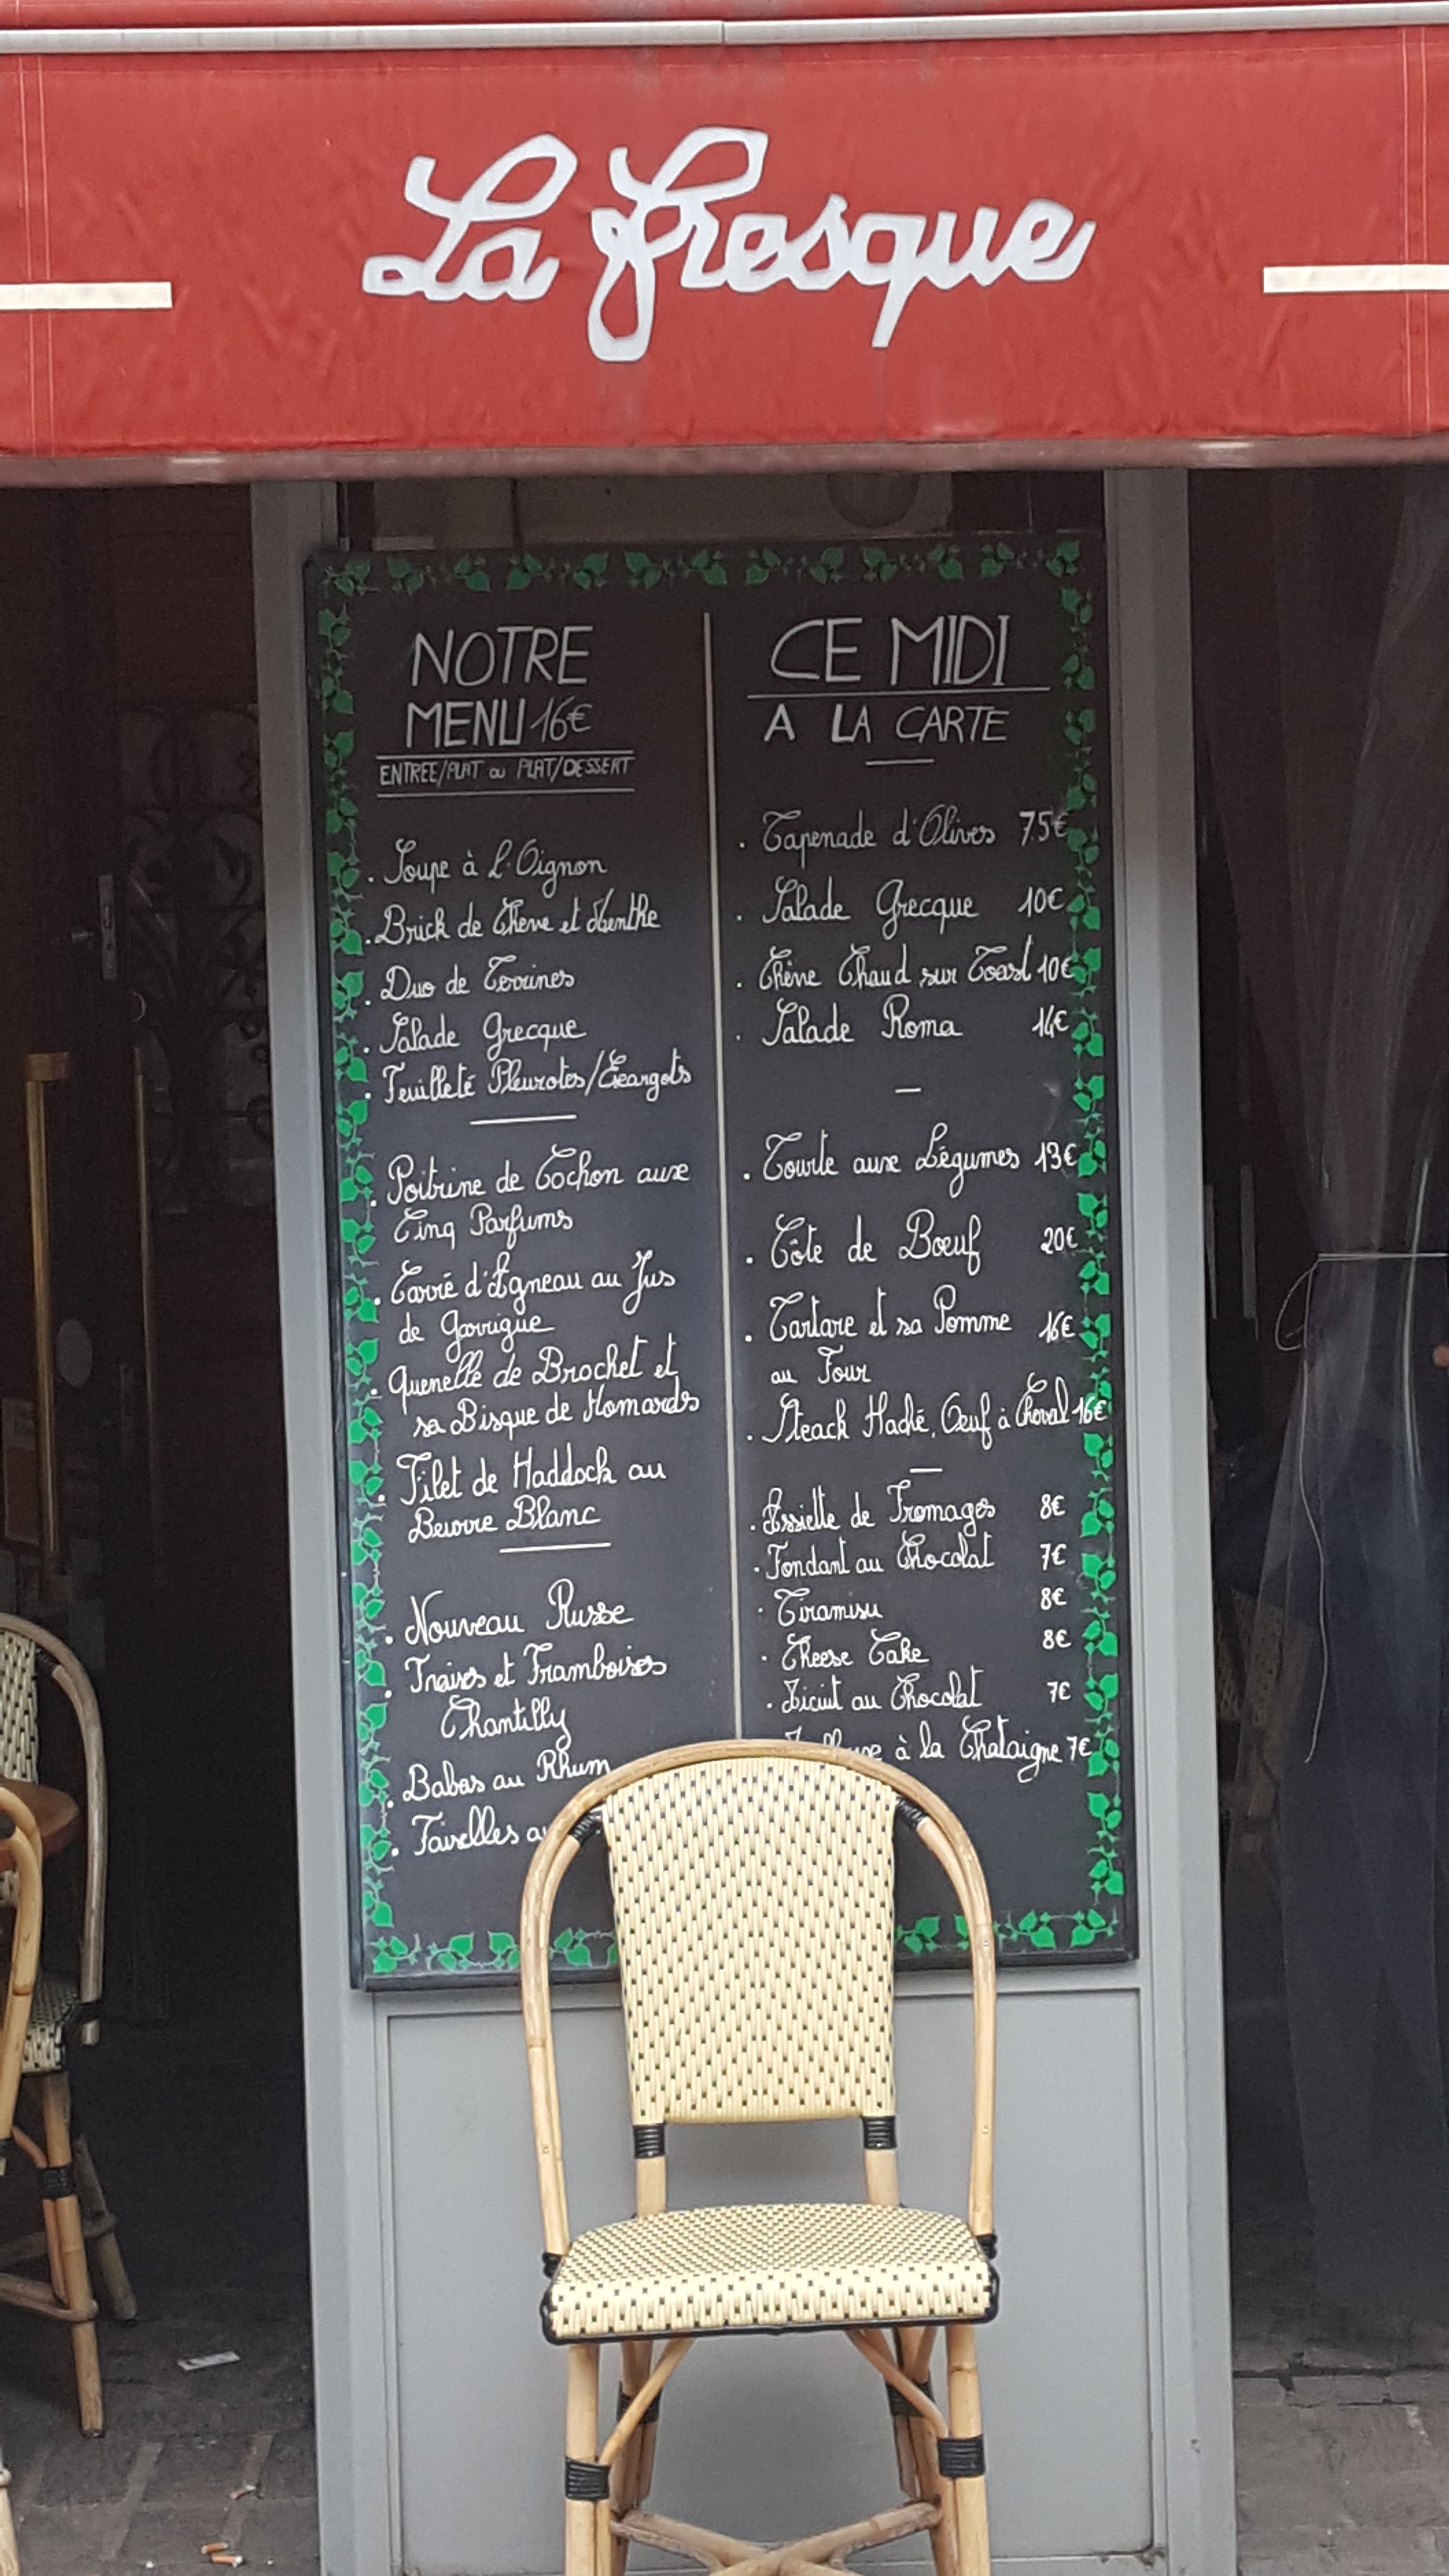 La fresque
NOTRE
MENU 16€
ENTREE/PLAT ou PLAT/DESSERT
. Soupe à L'Oignon
. Brick de Chèvre et Menthe
. Duo de Terrines
. Salade Grecque
. Feuilleté Pleurotes/Escargots
. Poitrine de Cochon aux
Cinq Parfums
. Carré d'Agneau au Jus
de Garrigue
. Quenelle de Brochet et
sa Bisque de Homards
. Filet de Haddock au
Beurre Blanc
. Nouveau Russe
. Fraises et Framboises
Chantilly
. Babas au Rhum
. Faisselles au
CE MIDI
A LA CARTE
. Tapenade d'Olives 7.5€
. Salade Grecque 10€
. Chèvre Chaud sur Toast 10€
. Salade Roma 14€
. Tourte aux Légumes 13€
. Côte de Boeuf 20€
. Tartare et sa Pomme 16€
au Four
. Steack Haché, Oeuf à Cheval 16€
. Assiette de Fromages 8€
. Fondant au Chocolat 7€
. Tiramisu 8€
. Cheese Cake 8€
. au Chocolat 7€
à la Chataigne 7€